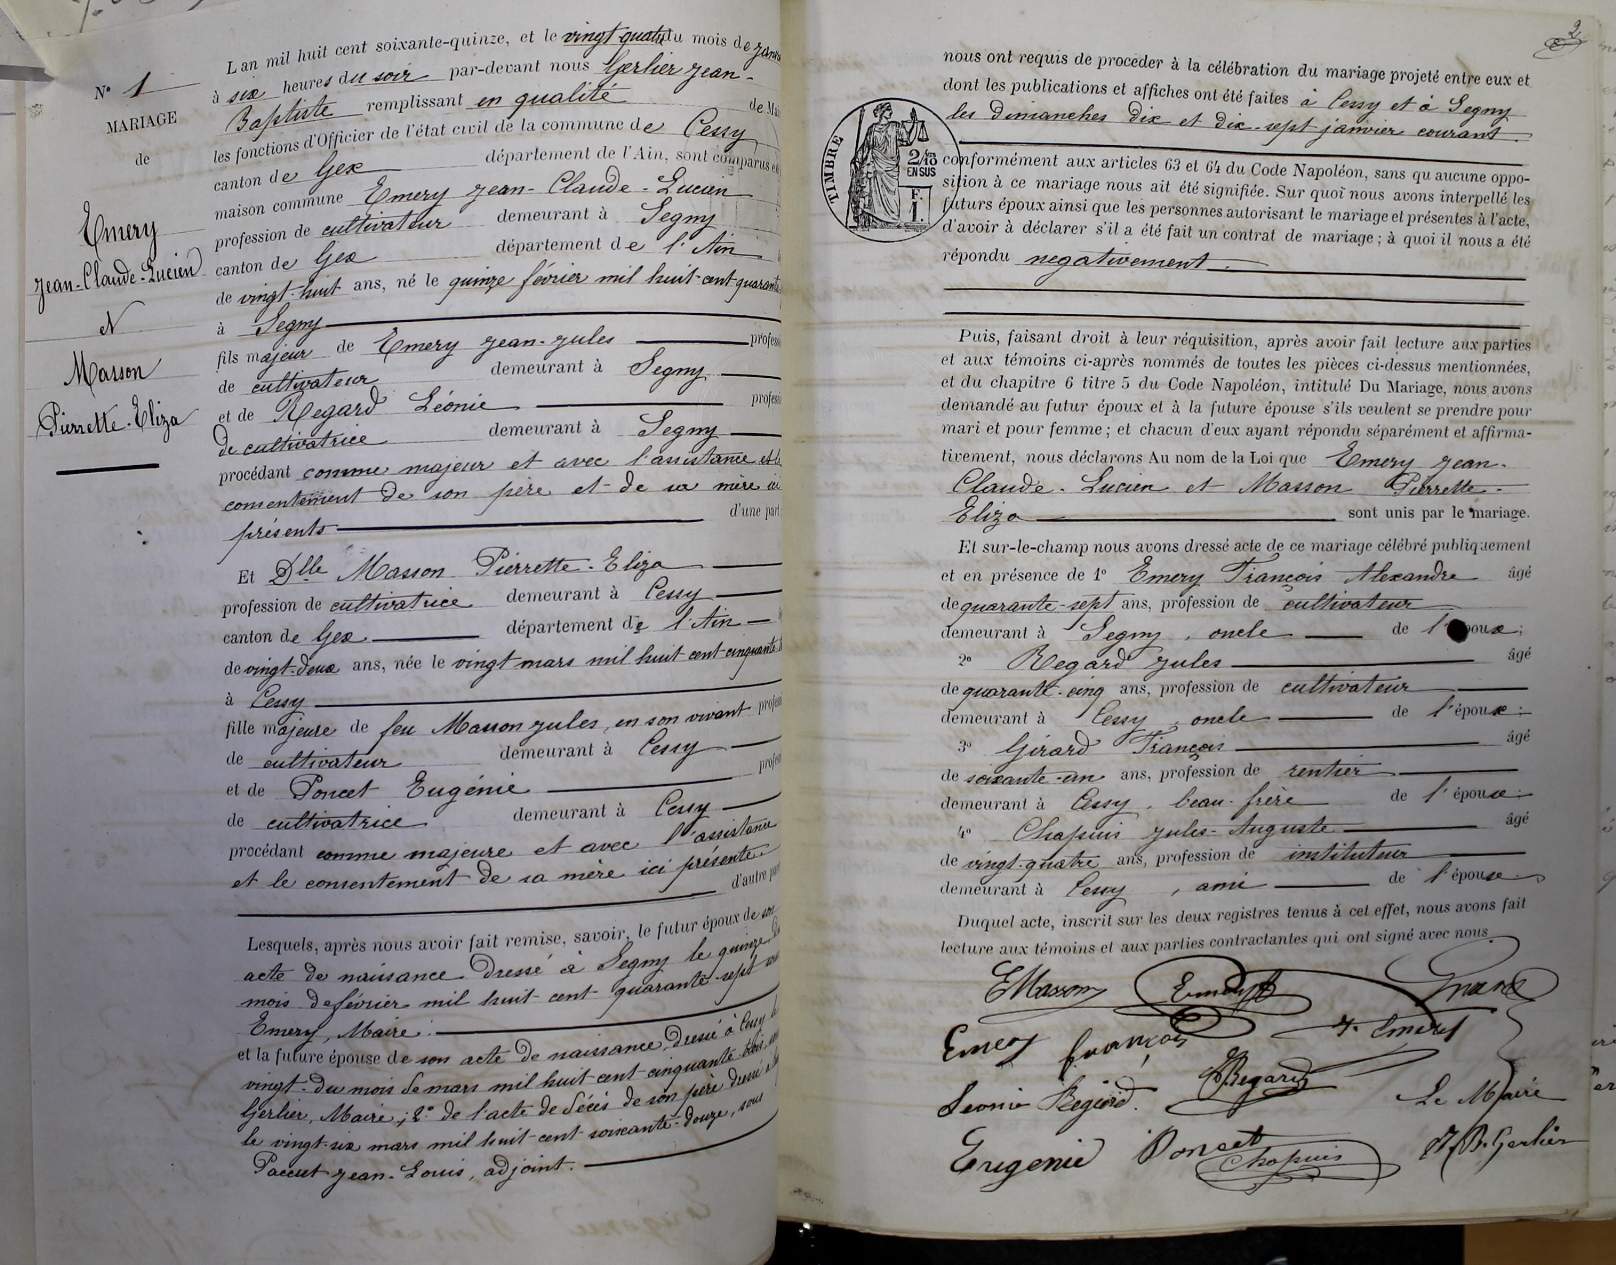 N° 1
MARIAGE
de
Emery
Jean-Claude-Lucien
&
Masson
Pierrette-Eliza
L'an mil huit cent soixante-quinze, et le vingt-quatre du mois de janvier
à six heures du soir par-devant nous Gerlier Jean-
Baptiste remplissant en qualité de Ma
les fonctions d'Officier de l'état civil de la commune de Cessy
canton de Gex département de l'Ain, sont comparus en
maison commune Emery Jean-Claude-Lucien
profession de cultivateur demeurant à Segny
canton de Gex département de l'Ain
de vingt-huit ans, né le quinze février mil huit-cent-quarante
à Segny
fils majeur de Emery Jean-Jules profess
de cultivateur demeurant à Segny
et de Regard Léonie profess
de cultivatrice demeurant à Segny
procédant comme majeur et avec l'assistance et le
consentement de son père et de sa mère ici
présents d'une part
Et Dlle Masson Pierrette-Eliza
profession de cultivatrice demeurant à Cessy
canton de Gex département de l'Ain
de vingt-deux ans, née le vingt mars mil huit cent cinquante
à Cessy
fille majeure de feu Masson Jules, en son vivant profess
de cultivateur demeurant à Cessy
et de Poncet Eugénie profess
de cultivatrice demeurant à Cessy
procédant comme majeure et avec l'assistance
et le consentement de sa mère ici présente
d'autre part
Lesquels, après nous avoir fait remise, savoir, le futur époux de son
acte de naissance dressé à Segny le quinze du
mois de février mil huit-cent-quarante-sept
Emery, Maire.
et la future épouse de son acte de naissance dressé à Cessy le
vingt du mois de mars mil huit cent cinquante-trois,
Gerlier, Maire; 2° de l'acte de décès de son père dressé à
le vingt-six mars mil huit-cent-soixante-douze, sous
Paccut Jean-Louis, adjoint.
2
nous ont requis de proceder à la célébration du mariage projeté entre eux et
dont les publications et affiches ont été faites à Cessy et à Segny
les dimanches dix et dix-sept janvier courant.
TIMBRE
2/10 EN SUS
F. 1.
conformément aux articles 63 et 64 du Code Napoléon, sans qu'aucune oppo-
sition à ce mariage nous ait été signifiée. Sur quoi nous avons interpellé les
futurs époux ainsi que les personnes autorisant le mariage et présentes à l'acte,
d'avoir à déclarer s'il a été fait un contrat de mariage; à quoi il nous a été
répondu negativement.
Puis, faisant droit à leur réquisition, après avoir fait lecture aux parties
et aux témoins ci-après nommés de toutes les pièces ci-dessus mentionnées,
et du chapitre 6 titre 5 du Code Napoléon, intitulé Du Mariage, nous avons
demandé au futur époux et à la future épouse s'ils veulent se prendre pour
mari et pour femme; et chacun d'eux ayant répondu séparément et affirma-
tivement, nous déclarons Au nom de la Loi que Emery Jean-
Claude-Lucien et Masson Pierrette-
Eliza sont unis par le mariage.
Et sur-le-champ nous avons dressé acte de ce mariage célébré publiquement
et en présence de 1° Emery François Alexandre âgé
de quarante-sept ans, profession de cultivateur
demeurant à Segny, oncle de l'époux;
2° Regard Jules âgé
de quarante-cinq ans, profession de cultivateur
demeurant à Cessy, oncle de l'époux;
3° Girard François âgé
de soixante-un ans, profession de rentier
demeurant à Cessy, beau-frère de l'épouse;
4° Chapuis Jules-Auguste âgé
de vingt-quatre ans, profession de instituteur
demeurant à Cessy, ami de l'épouse
Duquel acte, inscrit sur les deux registres tenus à cet effet, nous avons fait
lecture aux témoins et aux parties contractantes qui ont signé avec nous
E Masson Emery Girard
Emery françois J. Emery
Leonie Regard. J Regard Le Maire
Eugenie Poncet Chapuis J. B. Gerlier